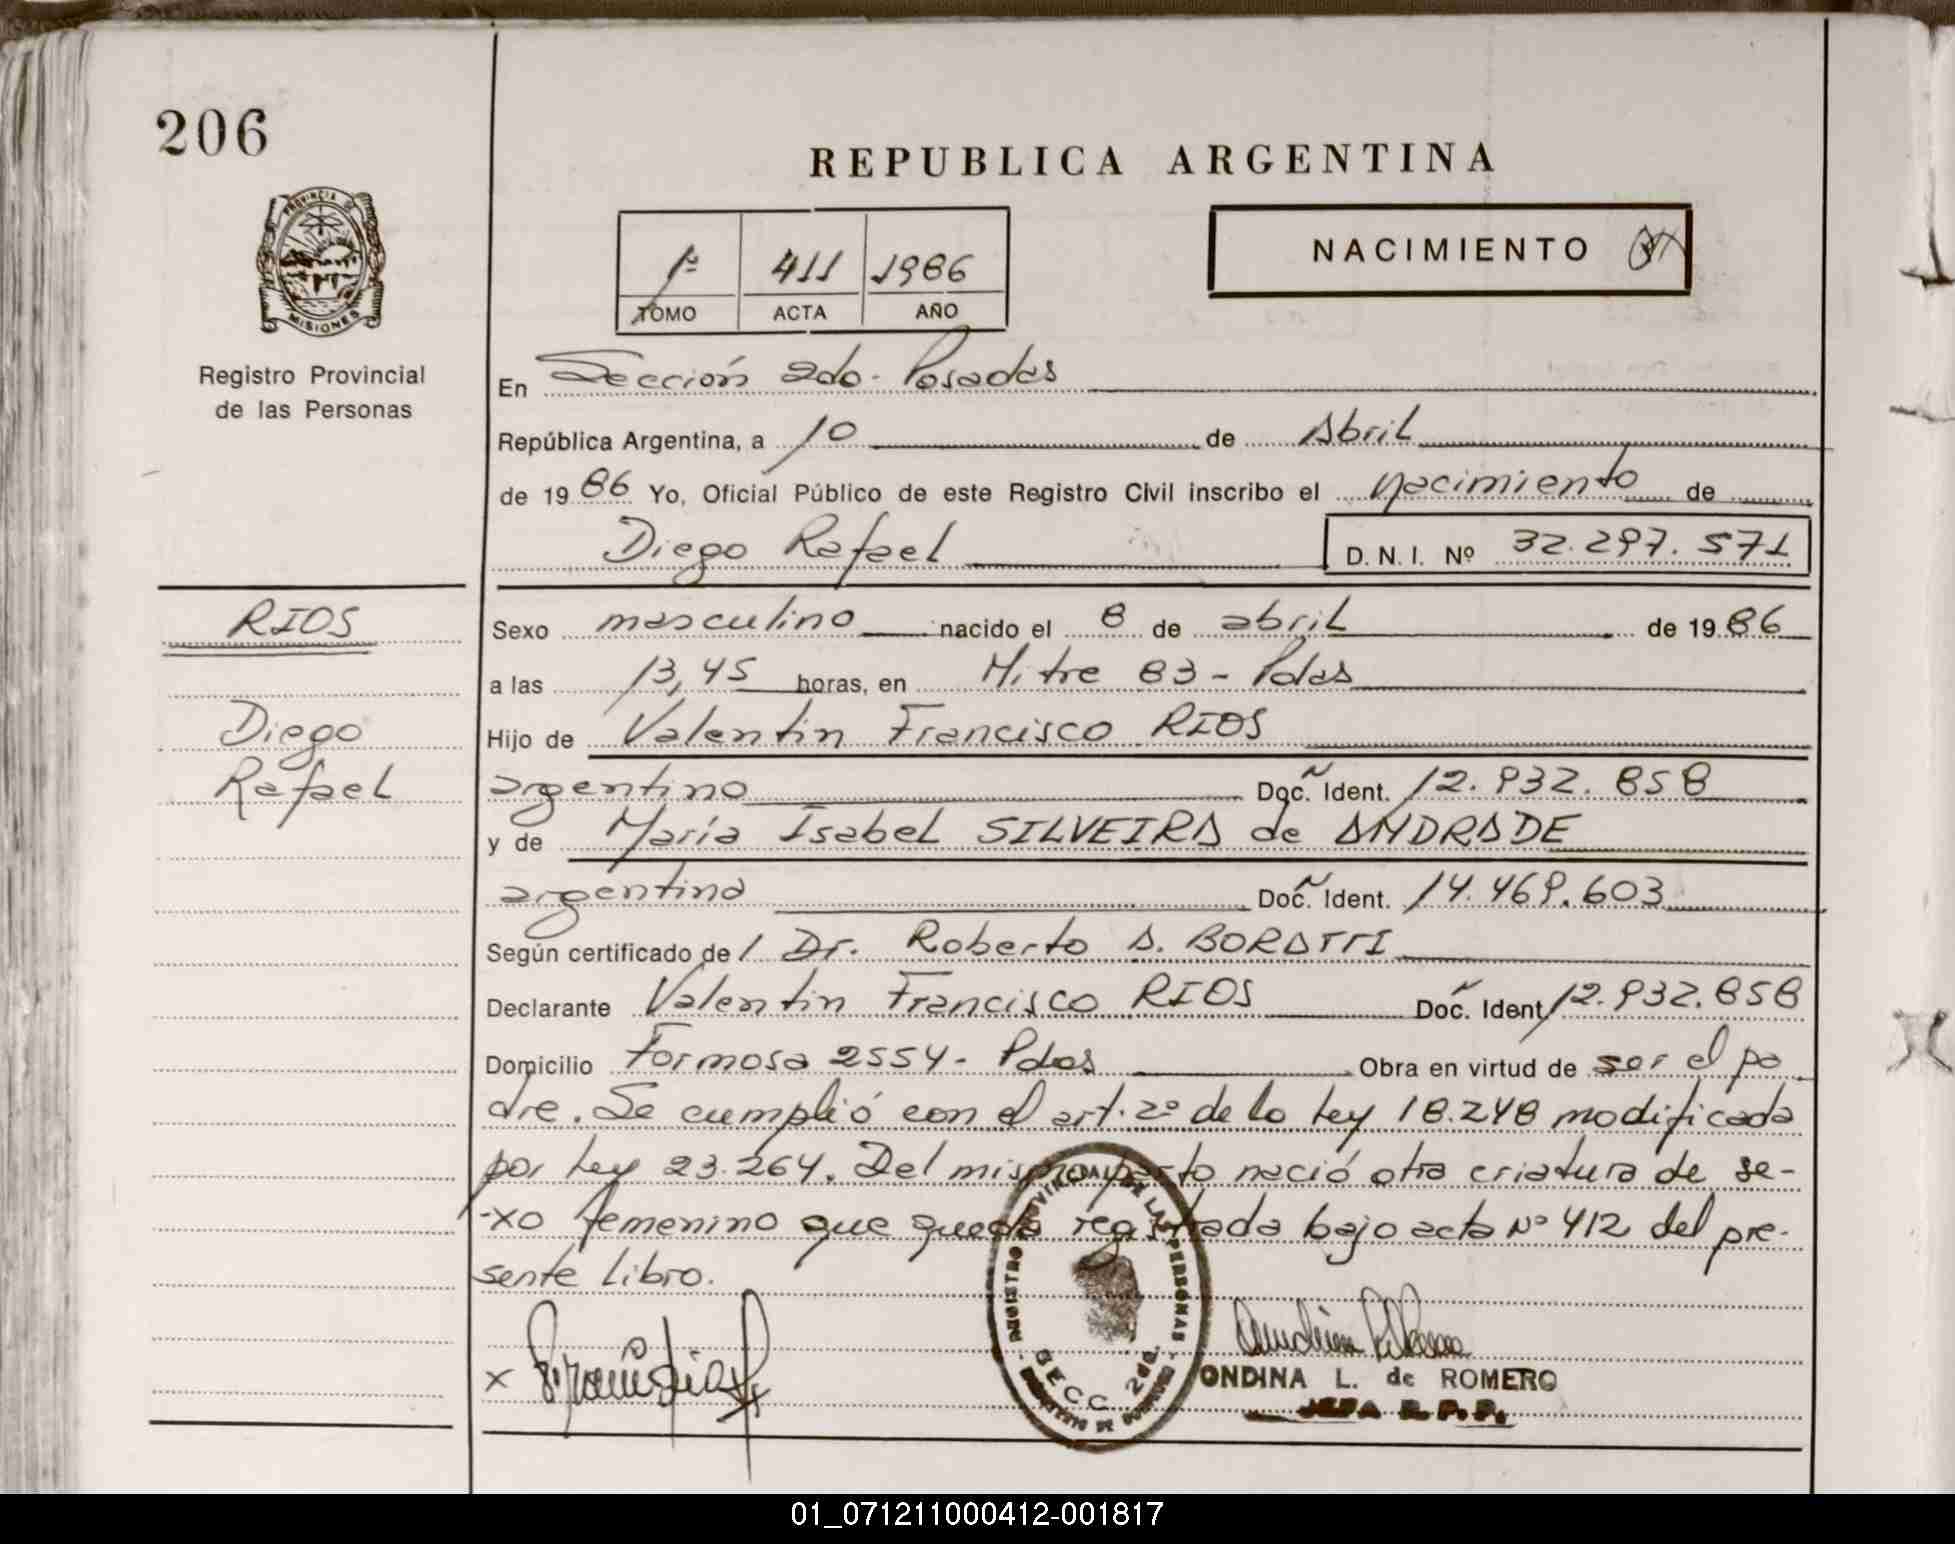 206
REPUBLICA ARGENTINA
PROVINCIA DE
MISIONES
1º 411 1986
TOMO ACTA AÑO
NACIMIENTO
Registro Provincial
de las Personas
En Sección 2do. Posadas
República Argentina, a 10 de Abril
de 1986 Yo, Oficial Público de este Registro Civil inscribo el nacimiento de
Diego Rafael D. N. I. Nº 32.297.571
RIOS
Diego
Rafael
Sexo masculino nacido el 8 de abril de 1986
a las 13,45 horas, en Mitre 83 - Pdas
Hijo de Valentin Francisco RIOS
argentino Doc. Ident. 12.932.858
y de María Isabel SILVEIRA de ANDRADE
argentina Doc. Ident. 14.469.603
Según certificado de l Dr. Roberto A. BORATTI
Declarante Valentin Francisco RIOS Doc. Ident 12.932.858
Domicilio Formosa 2554 - Pdas Obra en virtud de ser el pa
dre. Se cumplió con el art. 2º de la Ley 18.248 modificada
por Ley 23.264. Del mismo parto nació otra criatura de se-
-xo femenino que queda registrada bajo acta Nº 412 del pre-
sente libro.
REGISTRO PROVINCIAL DE LAS PERSONAS
SECC. 2da.
x
ONDINA L. de ROMERO
JEFA R. P. P.
01_071211000412-001817